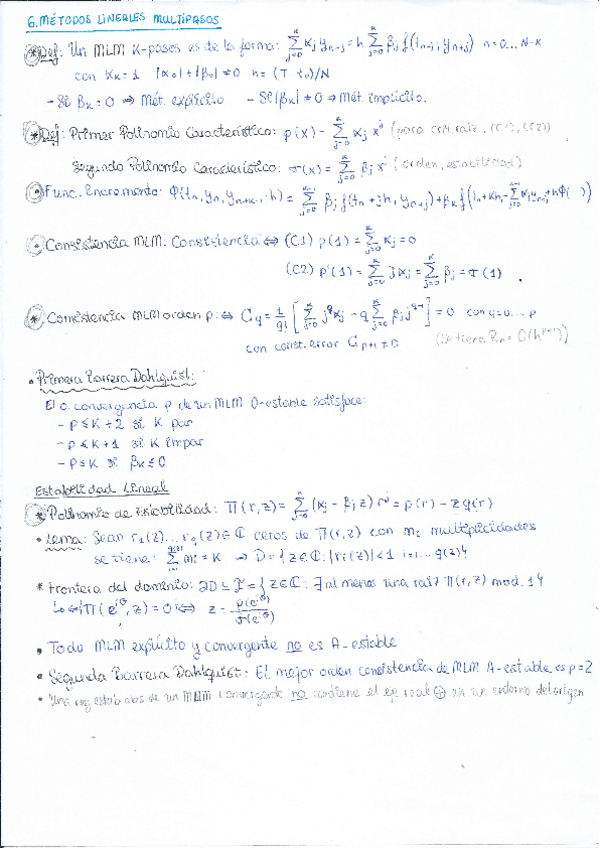 6. MÉTODOS LINEALES MULTIPASOS
* Def: Un MLM K-pasos es de la forma: Σ_{j=0}^{K} αj y_{n+j} = h Σ_{j=0}^{K} βj f(t_{n+j}, y_{n+j}) n=0...N-K
con αK=1 |α0|+|β0|≠0 h=(T-t0)/N
- Si βK=0 ⇒ Mét. explícito - Si |βK|≠0 ⇒ Mét. implícito.
* Def: Primer Polinomio Característico: ρ(x) = Σ_{j=0}^{K} αj x^j (para crit. raíz, (C1), (C2))
Segundo Polinomio Característico: σ(x) = Σ_{j=0}^{K} βj x^j (orden, estabilidad)
Func. Incremento: Φ(tn, yn, y_{n+K-1}, h) = Σ βj f(tn+jh, y_{n+j}) + βK f(tn+Kh, -Σ αj y_{n+j} + hΦ( ))
Consistencia MLM: Consistencia ⇔ (C1) ρ(1) = Σ_{j=0}^{K} αj = 0
(C2) ρ'(1) = Σ_{j=0}^{K} jαj = Σ_{j=0}^{K} βj = σ(1)
* Consistencia MLM orden p: ⇔ Cq = 1/q! [Σ_{j=0}^{K} j^q αj - q Σ_{j=0}^{K} βj j^{q-1}] = 0 con q=0... p
con const. error C_{p+1} ≠ 0 (Se tiene Rn = O(h^{p+1}))
• Primera Barrera Dahlquist:
El o. convergencia p de un MLM 0-estable satisface:
- p ≤ K+2 si K par
- p ≤ K+1 si K impar
- p ≤ K si βK ≤ 0
Estabilidad Lineal
* Polinomio de Estabilidad: Π(r,z) = Σ_{j=0}^{K} (αj - βj z) r^j = ρ(r) - zσ(r)
• Lema: Sean r1(z)... rq(z) ∈ ℂ ceros de Π(r,z) con mi multiplicidades
se tiene: Σ mi = K → D = {z∈ℂ: |ri(z)|<1 i=1...q(z)}
* Frontera del dominio: ∂D ⊆ F = {z∈ℂ: ∃ al menos una raíz Π(r,z) mod. 1}
↳ ⇔ Π(e^{iθ}, z) = 0 ⇔ z = ρ(e^{iθ})/σ(e^{iθ})
• Todo MLM explícito y convergente no es A-estable
• Segunda Barrera Dahlquist: El mejor orden consistencia de MLM A-estable es p=2
• Una reg. estab abs de un MLM convergente no contiene el eje real ⊕ en un entorno del origen